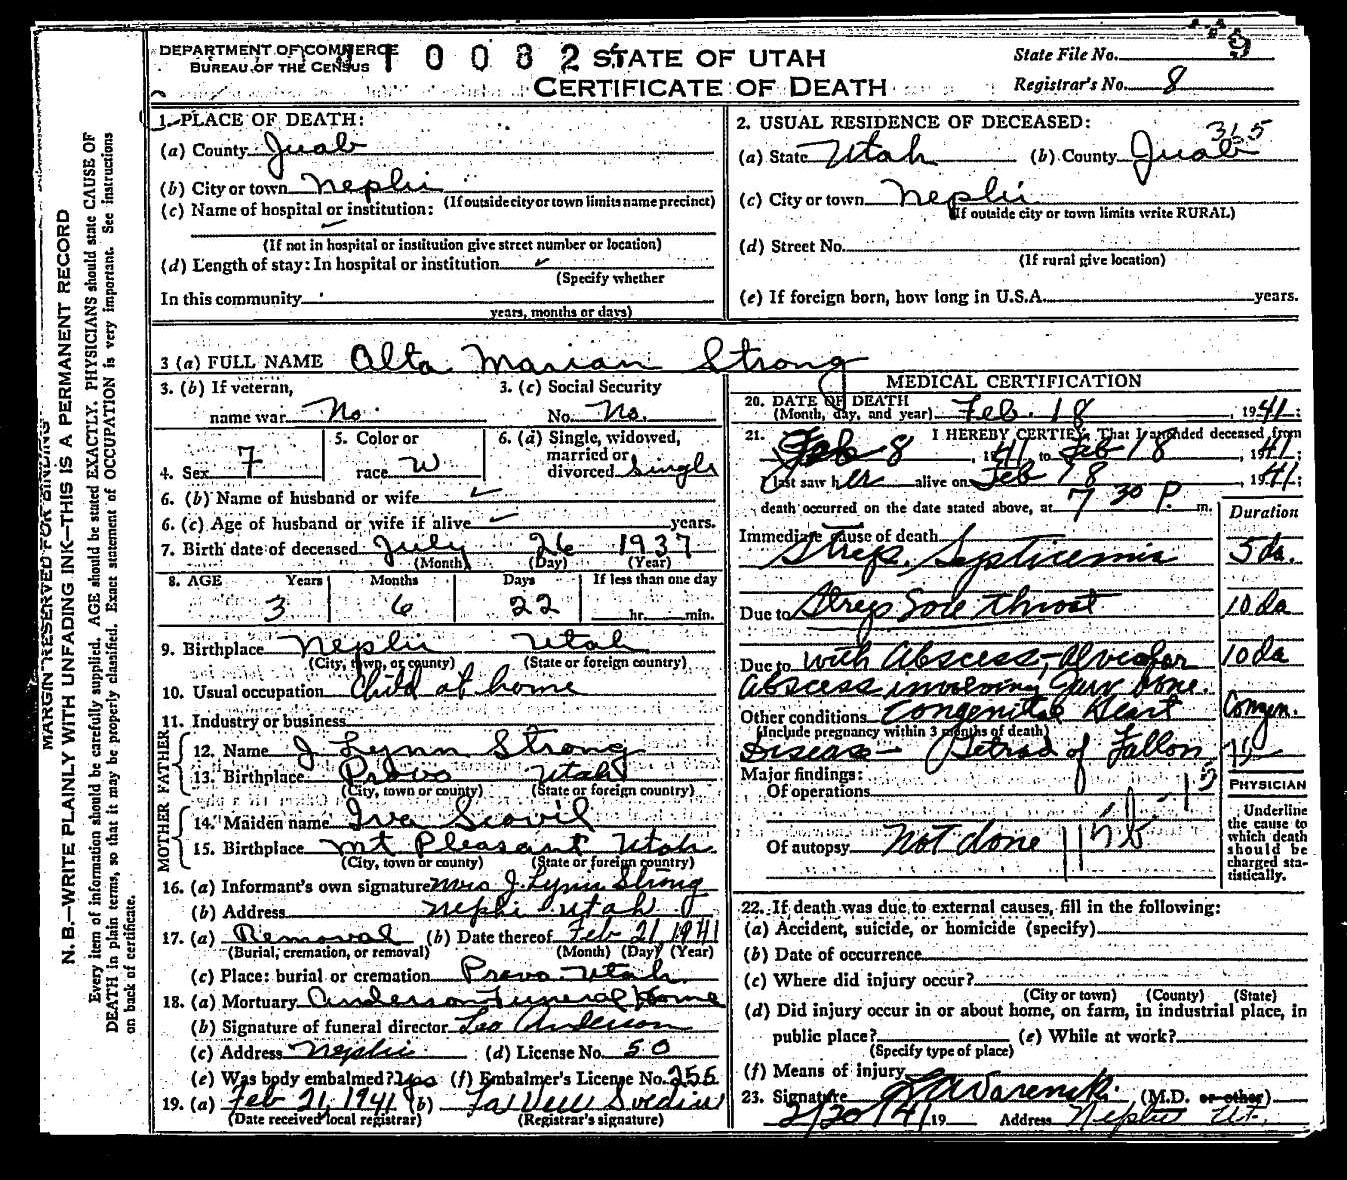 DEPARTMENT OF COMMERCE
BUREAU OF THE CENSUS
STATE OF UTAH
CERTIFICATE OF DEATH
State File No.
Registrar's No. 8
MARGIN RESERVED FOR BINDING
N. B.—WRITE PLAINLY WITH UNFADING INK—THIS IS A PERMANENT RECORD
Every item of information should be carefully supplied. AGE should be stated EXACTLY. PHYSICIANS should state CAUSE OF
DEATH in plain terms, so that it may be properly classified. Exact statement of OCCUPATION is very important. See instructions
on back of certificate.
1. PLACE OF DEATH:
(a) County Juab
(b) City or town Nephi
(If outside city or town limits name precinct)
(c) Name of hospital or institution:
(If not in hospital or institution give street number or location)
(d) Length of stay: In hospital or institution
(Specify whether
In this community
years, months or days)
2. USUAL RESIDENCE OF DECEASED:
365
(a) State Utah (b) County Juab
(c) City or town Nephi
(If outside city or town limits write RURAL)
(d) Street No.
(If rural give location)
(e) If foreign born, how long in U.S.A. years.
3 (a) FULL NAME Alta Marian Strong
3. (b) If veteran,
name war No.
3. (c) Social Security
No. No.
4. Sex F
5. Color or
race W
6. (a) Single, widowed,
married or
divorced Single
6. (b) Name of husband or wife
6. (c) Age of husband or wife if alive years.
7. Birth date of deceased July 26 1937
(Month) (Day) (Year)
8. AGE Years Months Days If less than one day
3 6 22 hr. min.
9. Birthplace Nephi Utah
(City, town, or county) (State or foreign country)
10. Usual occupation Child at home
11. Industry or business
FATHER
12. Name J. Lynn Strong
13. Birthplace Provo Utah
(City, town or county) (State or foreign country)
MOTHER
14. Maiden name Iva Scovil
15. Birthplace Mt Pleasant Utah
(City, town or county) (State or foreign country)
16. (a) Informant's own signature Mrs J. Lynn Strong
(b) Address Nephi Utah
17. (a) Removal (b) Date thereof Feb 21 1941
(Burial, cremation, or removal) (Month) (Day) (Year)
(c) Place: burial or cremation Provo Utah
18. (a) Mortuary Anderson Funeral Home
(b) Signature of funeral director Leo Anderson
(c) Address Nephi (d) License No. 50
(e) Was body embalmed? Yes (f) Embalmer's License No. 255
19. (a) Feb 21, 1941 (b)
(Date received local registrar) (Registrar's signature)
MEDICAL CERTIFICATION
20. DATE OF DEATH
(Month, day, and year) Feb. 18, 1941;
21. I HEREBY CERTIFY, That I attended deceased from
Feb 8, 1941 to Feb 18, 1941;
I last saw her alive on Feb 18, 1941;
death occurred on the date stated above, at 7 30 P. m.
Duration
Immediate cause of death
Strep. Septicemia 5 da.
Due to Strep Sore throat 10 da
Due to with Abscess, Alveolar 10 da
Abscess involving Jaw bone.
Other conditions Congenital Heart Congen.
(Include pregnancy within 3 months of death)
Disease — Tetrad of Fallon
Major findings:
Of operations
Of autopsy Not done
PHYSICIAN
Underline
the cause to
which death
should be
charged sta-
tistically.
22. If death was due to external causes, fill in the following:
(a) Accident, suicide, or homicide (specify)
(b) Date of occurrence
(c) Where did injury occur?
(City or town) (County) (State)
(d) Did injury occur in or about home, on farm, in industrial place, in
public place? (e) While at work?
(Specify type of place)
(f) Means of injury
23. Signature (M.D. or other)
2/20/41 19 Address Nephi Ut.